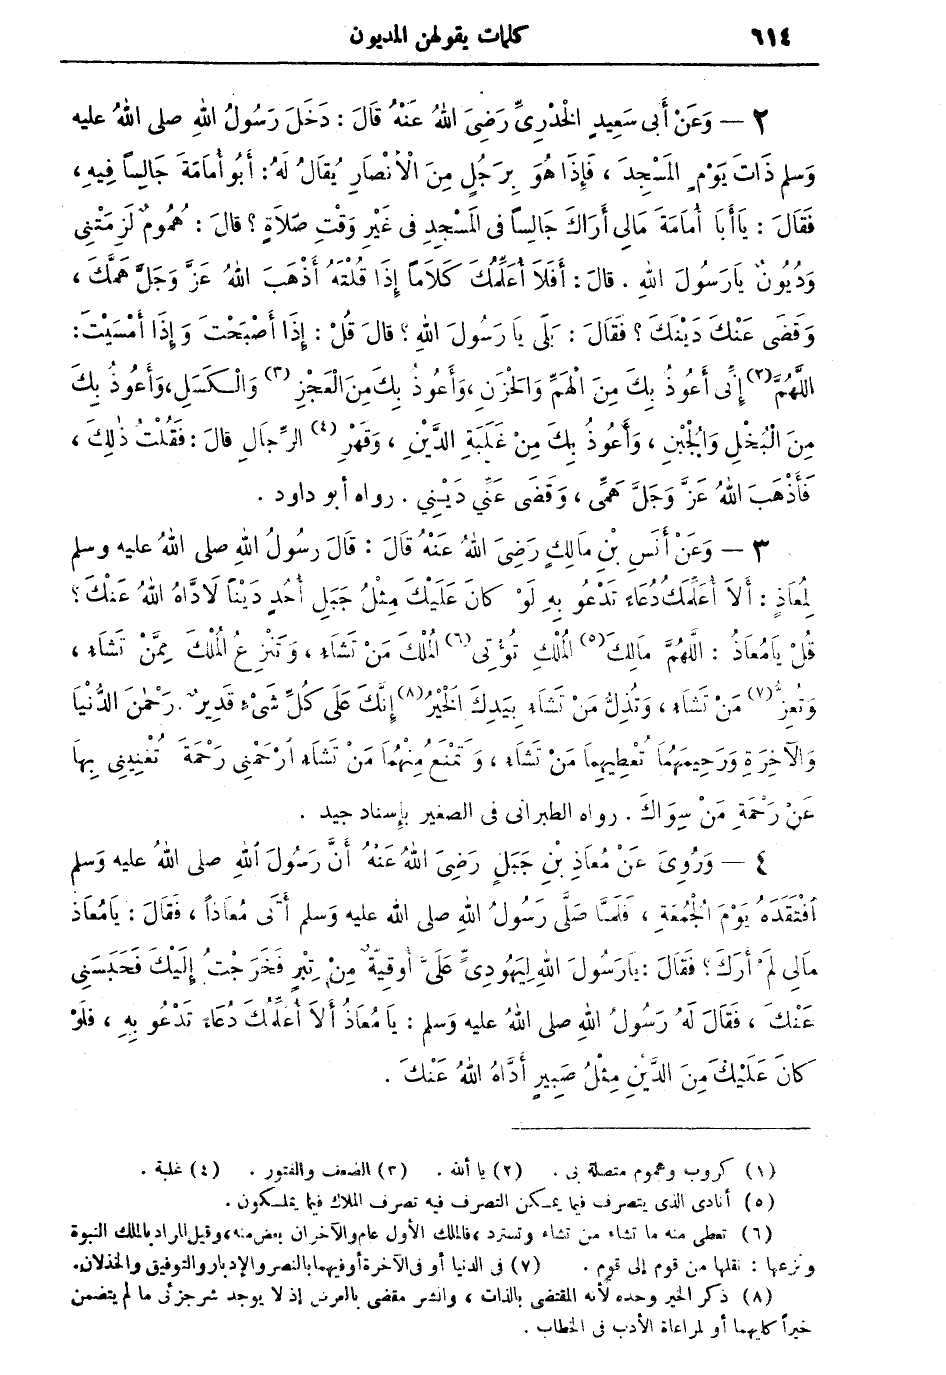 ٦١٤ كلمات يقولهن المديون
٢ — وَعَنْ أَبِى سَعِيدٍ الْخُدْرِىِّ رَضِىَ اللهُ عَنْهُ قَالَ : دَخَلَ رَسُولُ اللهِ صلى اللهُ عليه
وَسلم ذَاتَ يَوْمٍ الْمَسْجِدَ ، فَإِذَا هُوَ بِرَجُلٍ مِنَ الْأَنْصَارِ يُقَالُ لَهُ: أَبُو أُمَامَةَ جَالِسًا فِيهِ،
فَقَالَ : يَا أَبَا أُمَامَةَ مَالِى أَرَاكَ جَالِسًا فى الْمَسْجِدِ فى غَيْرِ وَقْتِ صَلَاةٍ ؟ قالَ : هُمُومٌ لَزِمَتْنِى
وَدُيُونٌ يَارَسُولَ اللهِ . قالَ : أَفَلَا أُعَلِّمُكَ كَلَامًا إِذَا قُلْتَهُ أَذْهَبَ اللهُ عَزَّ وَجَلَّ هَمَّكَ ،
وَقَضَى عَنْكَ دَيْنَكَ ؟ فَقَالَ : بَلَى يَا رَسُولَ اللهِ ؟ قالَ قُلْ : إِذَا أَصْبَحْتَ وَإِذَا أَمْسَيْتَ :
اللَّهُمَّ(٢) إِنِّى أَعُوذُ بِكَ مِنَ الْهَمِّ وَالْحَزَنِ ،وَأَعُوذُ بِكَ مِنَ الْعَجْزِ(٣) وَالْكَسَلِ،وَأَعُوذُ بِكَ
مِنَ الْبُخْلِ وَالْجُبْنِ ، وَأَعُوذُ بِكَ مِنْ غَلَبَةِ الدَّيْنِ ، وَقَهْرِ(٤) الرِّجَالِ قالَ : فَقُلْتُ ذٰلِكَ ،
فَأَذْهَبَ اللهُ عَزَّ وَجَلَّ هَمِّى ، وَقَضَى عَنِّي دَيْنِي . رواه أبو داود .
٣ — وَعَنْ أَنَسِ بْنِ مَالِكٍ رَضِىَ اللهُ عَنْهُ قَالَ : قَالَ رَسُولُ اللهِ صلى اللهُ عليه وسلم
لِمُعَاذٍ : أَلَا أُعَلِّمُكَ دُعَاءً تَدْعُو بِهِ لَوْ كانَ عَلَيْكَ مِثْلُ جَبَلِ أُحُدٍ دَيْنًا لَادَّاهُ اللهُ عَنْكَ ؟
قُلْ يَامُعَاذُ : اللَّهُمَّ مالِكَ(٥) الْمُلْكِ تُؤْتِى(٦) الْمُلْكَ مَنْ تَشَاءُ ، وَتَنْزِعُ الْمُلْكَ مِمَّنْ تَشَاءُ ،
وَتُعِزُّ(٧) مَنْ تَشَاءُ ، وَتُذِلُّ مَنْ تَشَاءُ بِيَدِكَ الْخَيْرُ(٨) إِنَّكَ عَلَى كُلِّ شَىْءٍ قَدِيرٌ . رَحْمٰنَ الدُّنْيَا
وَالْآخِرَةِ وَرَحِيمَهُمَا تُعْطِيهِمَا مَنْ تَشَاءُ ، وَتَمْنَعُ مِنْهُمَا مَنْ تَشَاءُ ارْحَمْنِى رَحْمَةً تُغْنِينِى بِهَا
عَنْ رَحْمَةِ مَنْ سِوَاكَ . رواه الطبرانى فى الصغير بإسناد جيد .
٤ — وَرُوِىَ عَنْ مُعَاذِ بْنِ جَبَلٍ رَضِىَ اللهُ عَنْهُ أَنَّ رَسُولَ اللهِ صلى اللهُ عليه وَسلم
افْتَقَدَهُ يَوْمَ الْجُمُعَةِ ، فَلَمَّا صَلَّى رَسُولُ اللهِ صلى الله عليه وسلم أَتَى مُعَاذاً ، فَقَالَ : يَامُعَاذُ
مَالِى لَمْ أَرَكَ ؟ فَقَالَ : يَارَسُولَ اللهِ لِيَهُودِىٍّ عَلَىَّ أُوقِيَّةٌ مِنْ تِبْرٍ فَخَرَجْتُ إِلَيْكَ فَحَبَسَنِى
عَنْكَ ، فَقَالَ لَهُ رَسُولُ اللهِ صلى اللهُ عليه وَسلم : يَا مُعَاذُ أَلاَ أُعَلِّمُكَ دُعَاءً تَدْعُو بِهِ ، فَلَوْ
كانَ عَلَيْكَ مِنَ الدَّيْنِ مِثْلُ صَبِيرٍ أَدَّاهُ اللهُ عَنْكَ .
(١) كروب وهموم متصلة بى . (٢) يا ألله . (٣) الضعف والفتور . (٤) غلبة .
(٥) أنادى الذى يتصرف فيما يمكن التصرف فيه تصرف الملاك فيما يملكون .
(٦) تعطى منه ما تشاء من تشاء وتسترد ، فالملك الأول عام والآخران بعض منه، وقيل المراد بالملك النبوة
ونزعها : نقلها من قوم إلى قوم . (٧) فى الدنيا أو فى الآخرة أوفيهما بالنصر والإدبار والتوفيق والخذلان.
(٨) ذكر الخير وحده لأنه المقتضى بالذات ، والشر مقضى بالعرض إذ لا يوجد شرجزئى ما لم يتضمن
خيراً كليهما أو لمراعاة الأدب فى الخطاب .